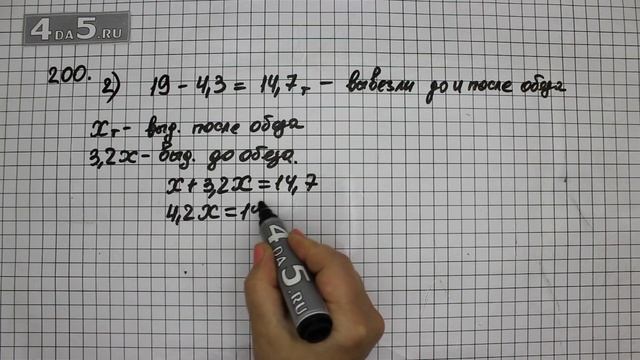 4 DA 5.RU
200. 2) 19 - 4,3 = 14,7 т - вывезли до и после обеда
x т - выд. после обеда
3,2x - выд. до обеда.
x + 3,2x = 14,7
4,2x = 14
4 DA 5.RU